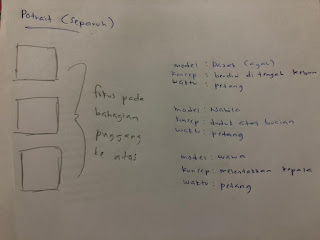 Potrait (separuh)
fokus pada
bahagian
pinggang
ke atas
model : Razak (ayah)
konsep : berdiri di tengah kebun
waktu : petang
model : Nabila
konsep : duduk atas buaian
waktu : petang
model : wawa
konsep : meletakkan kepala
waktu : petang